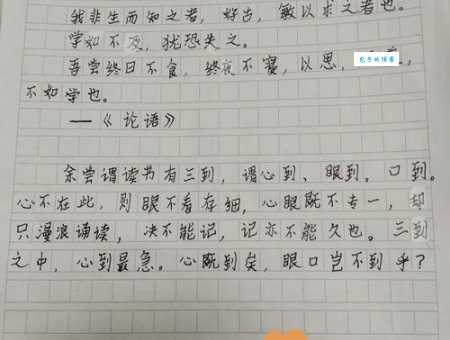 我非生而知之者，好古，敏以求之者也。
学如不及，犹恐失之。
吾尝终日不食，终夜不寝，以思，
不如学也。
——《论语》
余尝谓读书有三到，谓心到、眼到。口到。
心不在此，则眼不看存细，心眼既不专一，却
只漫浪诵读，决不能记，记亦不能久也。三到
之中，心到最急。心既到矣，眼口岂不到乎？